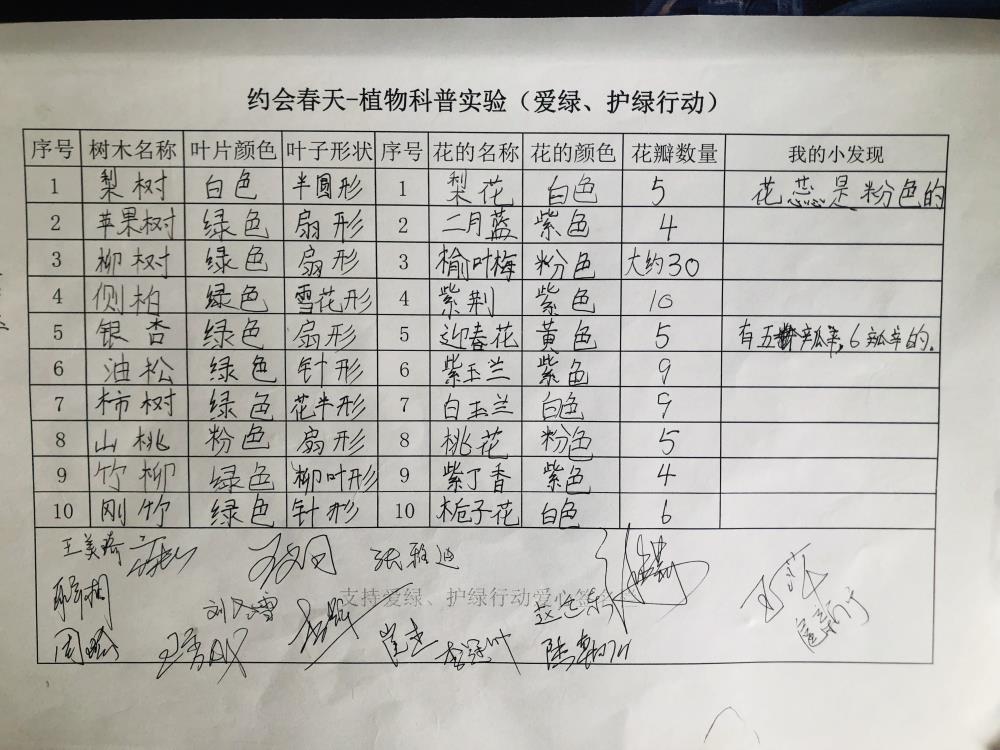 约会春天-植物科普实验（爱绿、护绿行动）
序号 树木名称 叶片颜色 叶子形状 序号 花的名称 花的颜色 花瓣数量 我的小发现
1 梨树 白色 半圆形 1 梨花 白色 5 花蕊是粉色的
2 苹果树 绿色 扇形 2 二月蓝 紫色 4
3 柳树 绿色 扇形 3 榆叶梅 粉色 大约30
4 侧柏 绿色 雪花形 4 紫荆 紫色 10
5 银杏 绿色 扇形 5 迎春花 黄色 5 有五瓣, 6瓣的.
6 油松 绿色 针形 6 紫玉兰 紫色 9
7 柿树 绿色 花半形 7 白玉兰 白色 9
8 山桃 粉色 扇形 8 桃花 粉色 5
9 竹柳 绿色 柳叶形 9 紫丁香 紫色 4
10 刚竹 绿色 针形 10 栀子花 白色 6
王美琦 张雅迪
支持爱绿、护绿行动爱心签名